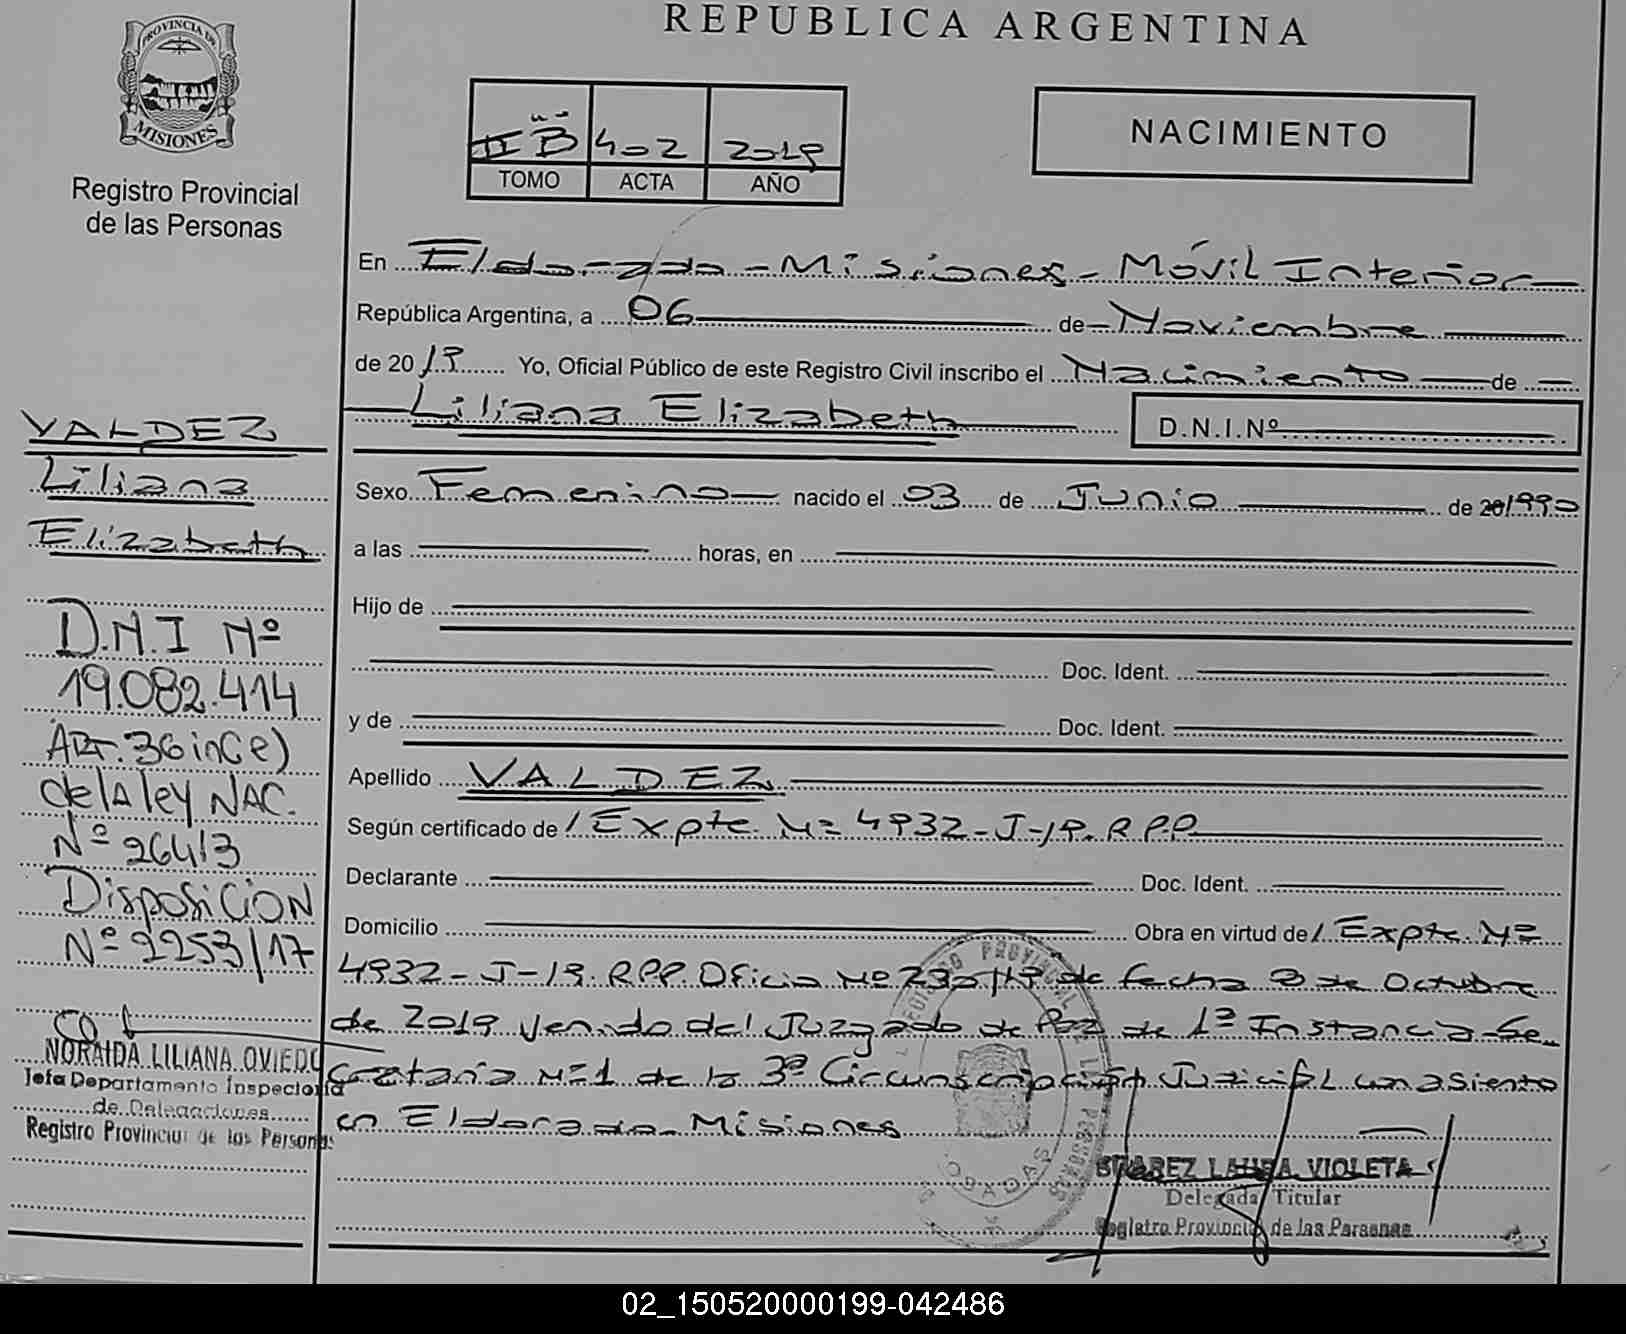 PROVINCIA DE
MISIONES
Registro Provincial
de las Personas
VALDEZ
Liliana
Elizabeth
D.N.I Nº
19.082.414
ART. 36 inC e)
de lA ley NAC.
Nº 26413
DisposiCiON
Nº 2253/17
NORAIDA LILIANA OVIEDO
Jefa Departamento Inspectoria
de Delegaciones
Registro Provincial de las Personas
REPUBLICA ARGENTINA
II "B" 402 2019
TOMO ACTA AÑO
NACIMIENTO
En Eldorado - Misiones - Móvil Interior
República Argentina, a 06 de Noviembre
de 2019 Yo, Oficial Público de este Registro Civil inscribo el Nacimiento de
Liliana Elizabeth D.N.I.Nº
Sexo Femenino nacido el 03 de Junio de 20 1990
a las horas, en
Hijo de
Doc. Ident.
y de Doc. Ident.
Apellido VALDEZ
Según certificado de / Expte. Nº 4932-J-19. R.P.P.
Declarante Doc. Ident.
Domicilio Obra en virtud de / Expte. Nº
4932-J-19. R.P.P. Oficio Nº 230/19 de fecha 8 de Octubre
de 2019 venido del Juzgado de Paz de 1ª Instancia Se
cretaria Nº 1 de la 3ª Circunscripción Judicial con asiento
en Eldorado Misiones
SUAREZ LAURA VIOLETA
Delegada Titular
Registro Provincial de las Personas
02_150520000199-042486